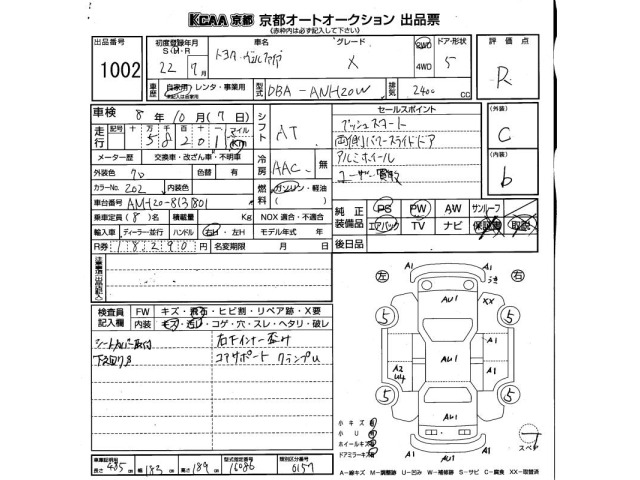 KCAA京都 京都オートオークション 出品票
(赤枠内は必ず記入して下さい)
出品番号
1002
初度登録年月 車名 グレード 2WD ドア・形状 評価点
S(H)R
22年7月 トヨタ ヴェルファイア X 4WD 5 R
車歴 自家用 レンタ・事業用 型式 DBA-ANH20W 排気 2400 CC
車検 8年10月(7日) シフト AT
セールスポイント
プッシュスタート
両側パワースライドドア
アルミホイール
ユーザー買取
(外装)
C
(内装)
b
走行 記号 十 万 千 百 十 一 マイル
58201 Km
メーター歴 交換車・改ざん車・不明車
冷房 AAC 無
外装色 70 色替 有
カラーNo. 202 内装色
燃料 ガソリン・軽油
車台番号 ANH20-8131801
乗車定員(8) 積載量 Kg NOX 適合・不適合
輸入車 ディーラー・並行 ハンドル 右H・左H モデル年式 年
R券 18290円 名変期限 月 日
純正装備品 PS PW AW サンルーフ
エアバック TV ナビ 保証書 取説
後日品
注意事項(出品店記入)
検査員記入欄 FW キズ・飛石・ヒビ割・リペア跡・X要
内装 キズ・汚レ・コゲ・穴・スレ・ヘタリ・破レ
シートカバー取付 右Fインナー歪み
下廻りサビ コアサポート クランプU
左 右
A1 A1
AU1
XX
5 5
AU1
A1
A2
U4
A1
AU1
5 5
AU1
A1 A1
小キズ
小U
ホイールキズ
ドアミラーキズ
スペア
車両証明書
長さ 485cm 幅 183cm 高さ 189cm 型式指定番号 16086 類別区分番号 0157
A-線キズ M-調整跡 U-凹み W-補修跡 S-サビ C-腐食 XX-取替済